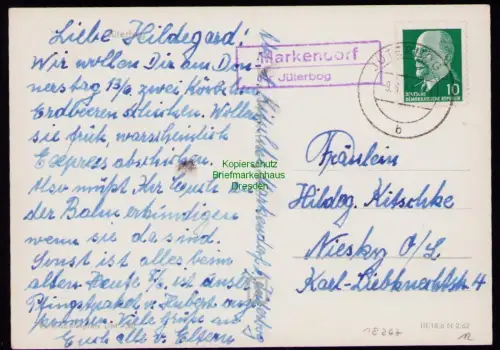 Liebe Hildegard!
Wir wollen Dir am Don-
nerstag 13/6. zwei Körbchen
Erdbeeren schicken. Wollen
sie früh, warscheinlich
Express abschicken.
Also müßt Ihr Euch bei
der Bahn erkundigen
wenn sie da sind.
Sonst ist alles beim
alten. Heute ist unser
Pfingstpaket v. Hubert ange-
kommen. Viele Grüße an
Euch alle v. Eltern
Markendorf
Jüterbog
JÜTERBOG
b
DEUTSCHE
DEMOKRATISCHE REPUBLIK
10
Kopierschutz
Briefmarkenhaus
Dresden
Fräulein
Hildeg. Kitschke
Niesky O/L.
Karl-Liebknechtstr.